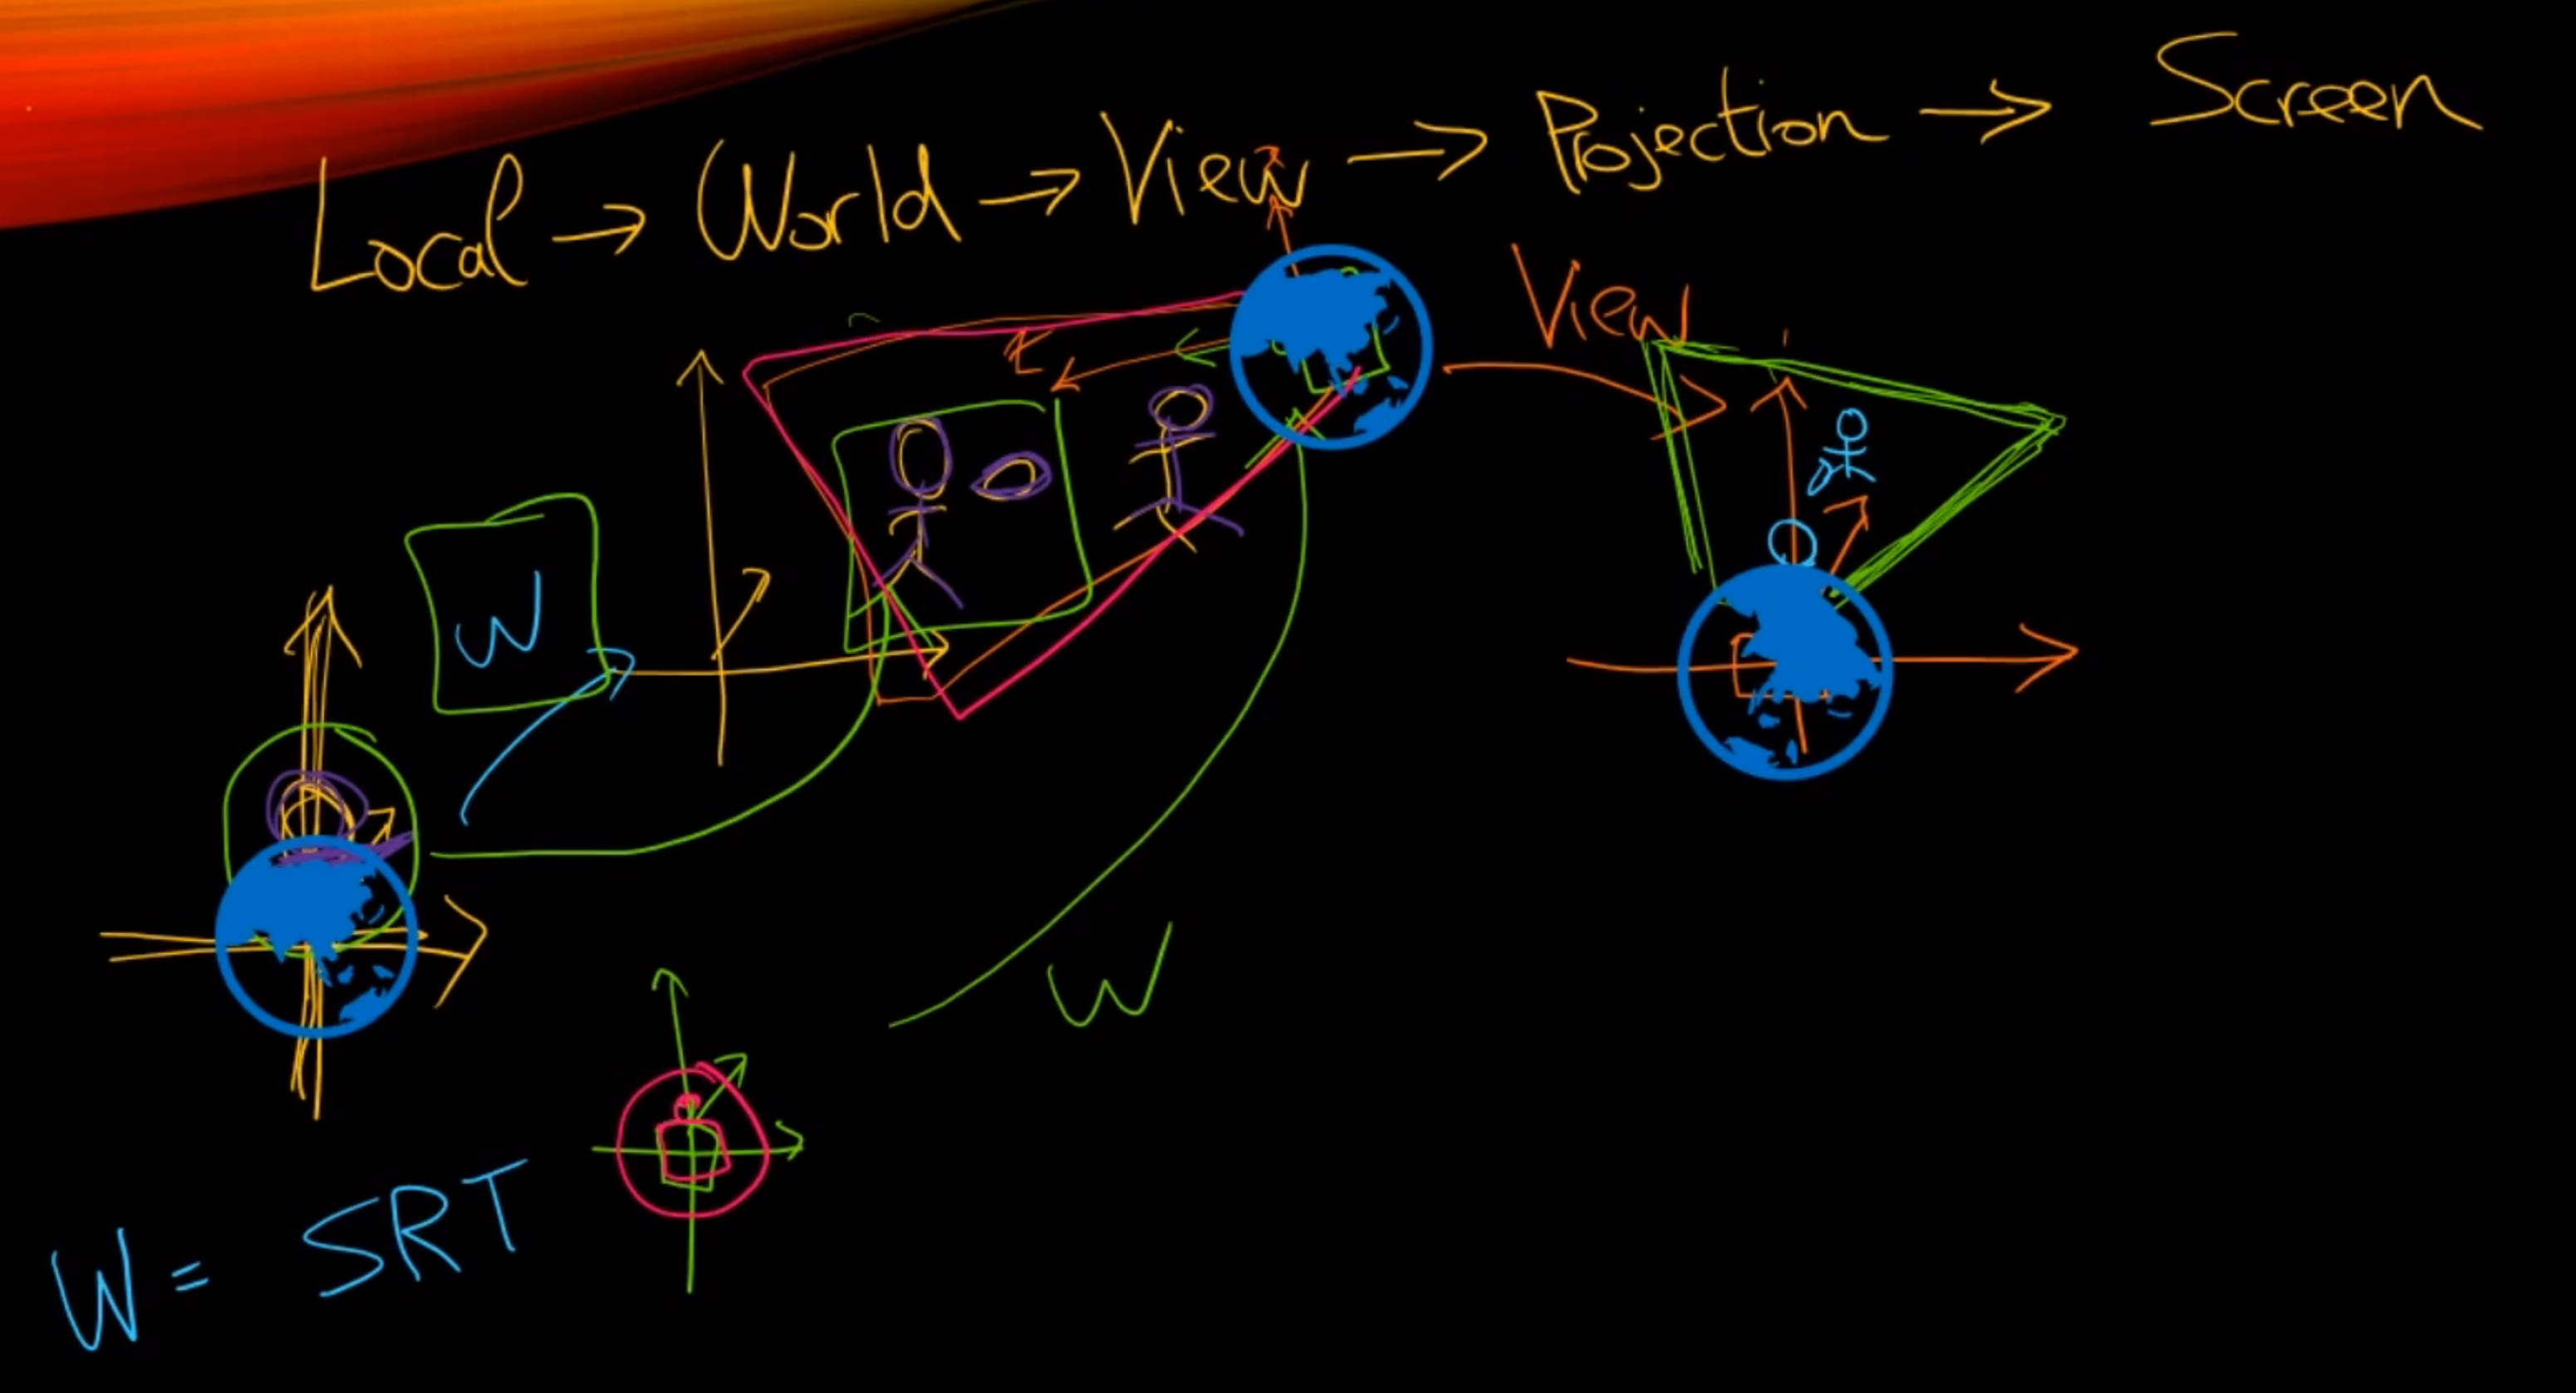 Local → World → View → Projection → Screen
View
t
W
W
W = SRT